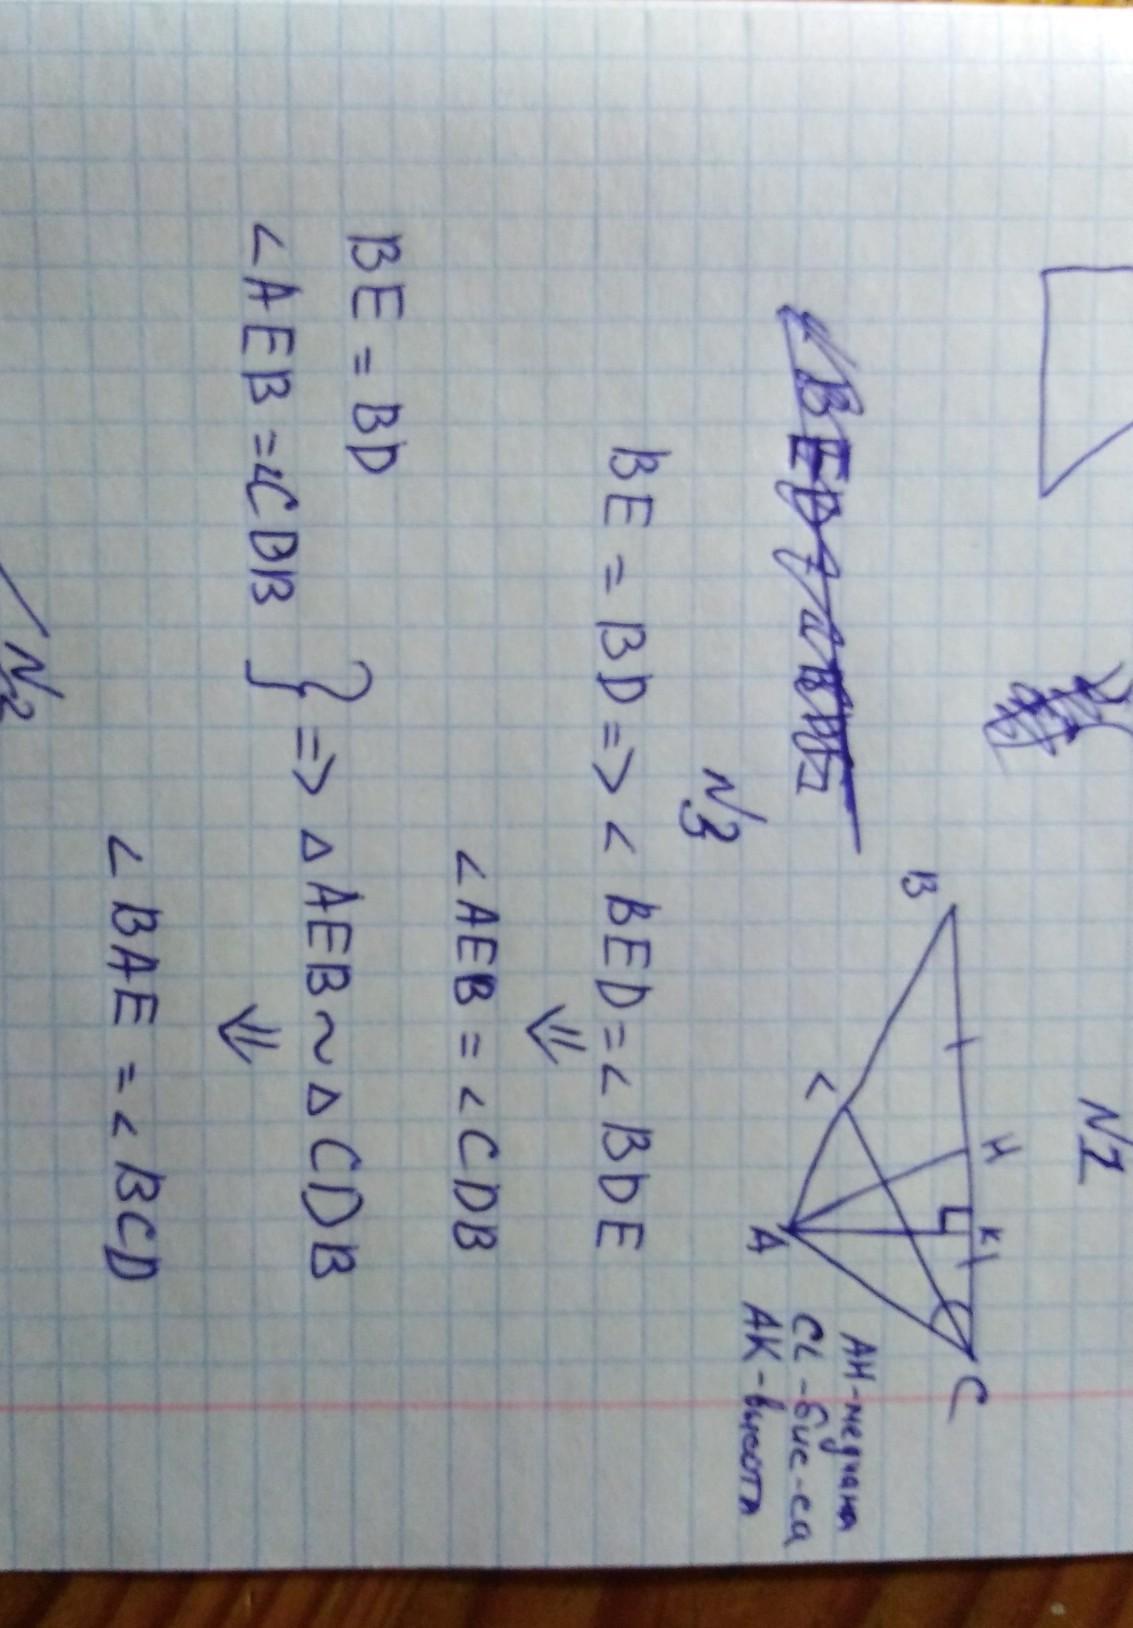 N1
B
H
K
C
L
A
AH-медиана
CL-бис-са
AK-высота
N3
BE = BD => < BED = < BDE
<AEB = < CDB
BE = BD
<AEB = <CDB
} => △ AEB ~ △ CDB
< BAE = < BCD
N2